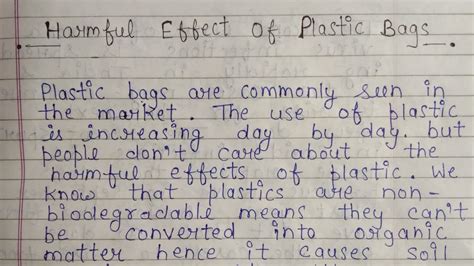 Harmful Effect Of Plastic Bags
Plastic bags are commonly seen in
the market. The use of plastic
is increasing day by day. but
people don't care about the
harmful effects of plastic. We
know that plastics are non-
biodegradable means they can't
be converted into organic
matter hence it causes soil